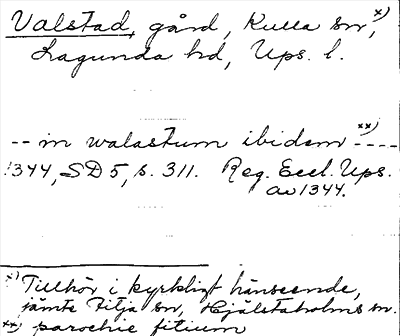 Valstad, gård, Kulla sn, x)
Lagunda hd, Ups. l.
-- in walastum ibidem xx) ----
1344, SD 5, s. 311. Reg. Eccl. Ups.
av 1344.
x) Tillhör i kyrkligt hänseende,
jämte Fitja sn, Hjälstaholms sn.
xx) parochie fitium